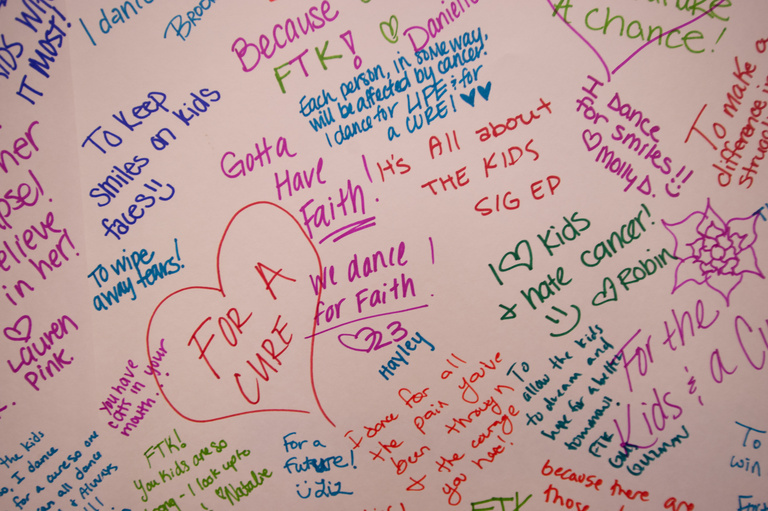 IT MOST!
I dance
Because
FTK!
Danielle
A chance!
Each person, in some way,
will be affected by cancer.
I dance for LIFE & for
a CURE!
To Keep
smiles on kids
faces!!
Gotta
Have
Faith!
It's All about
THE KIDS
SIG EP
Dance
for smiles!!
Molly D.
To make a
difference in
believe
in her!
Lauren
Pink.
To wipe
away tears!
FOR A
CURE
we dance
for Faith!
23
Hayley
I ♡ Kids
& hate cancer!
♡ Robin
You have
cats in your
mouth.
I dance for all
the pain you've
been through
& the courage
you have!
To
allow the kids
to dream and
hope for a better
tomorrow!
FTK
For the
Kids & a
FTK!
You kids are so
strong - I look up to
Natalie
For a
Future!
Liz
the kids
I dance
for a cure so one
can all dance
& Always
To
win
because there are
those
FTK